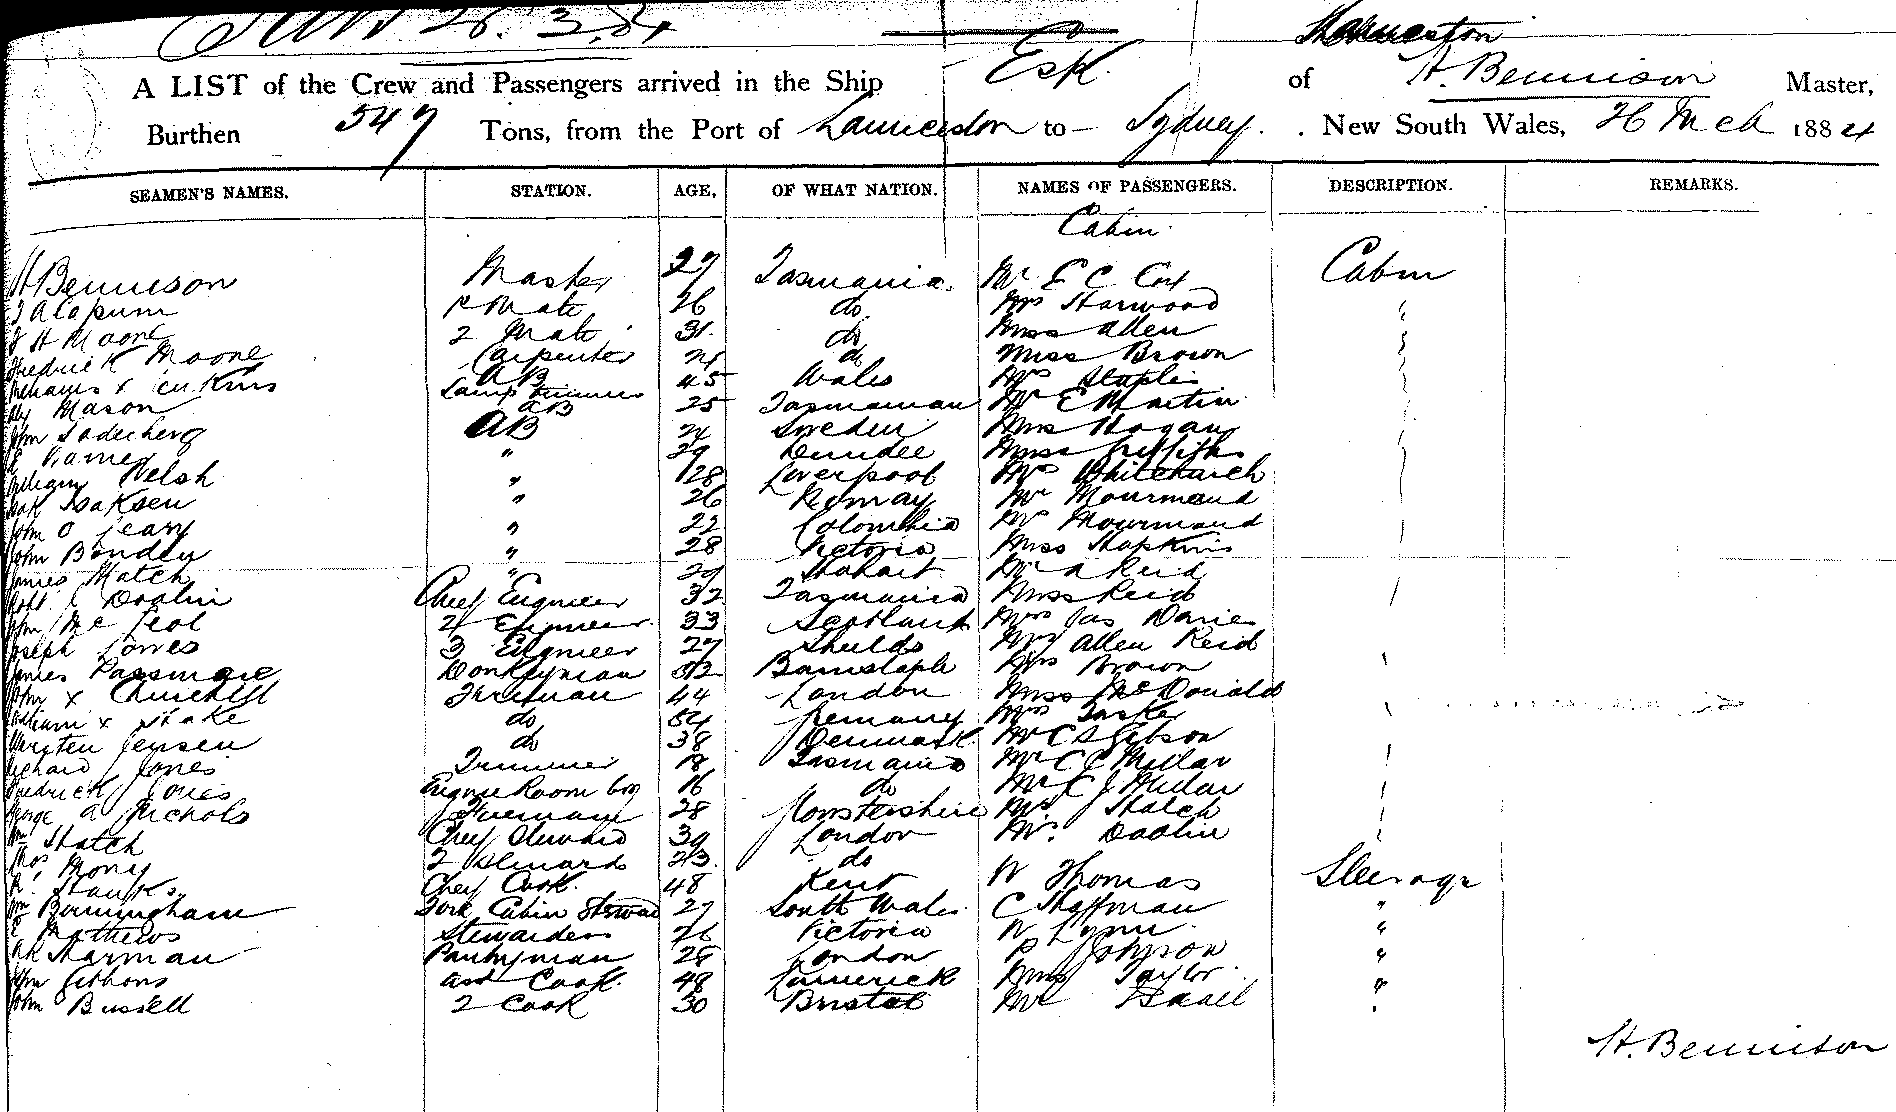 26.3.84
Launceston
A LIST of the Crew and Passengers arrived in the Ship Esk. of H. Bennison Master,
Burthen 547 Tons, from the Port of Launceston to Sydney. New South Wales, 26 Mch 1884
SEAMEN'S NAMES. STATION. AGE, OF WHAT NATION. NAMES OF PASSENGERS. DESCRIPTION. REMARKS.
Cabin
H Bennison Master 27 Tasmania. Mr E C Cox Cabin
Mate 26 do Mrs Harwood "
J H Moore 2 Mate 31. do Miss Allen
Fredrick Moore Carpenter do Miss Brown
x Jenkins AB 45 Wales Mrs Staples
Mason Lamp Trimmer AB 25 Tasmanian Mr E Martin
John Soderberg AB Sweden Mrs Hogan
" 29 Dundee Miss Griffiths
William Welsh " 28 Liverpool Mrs Whitchurch
Isak Isaksen " 26 Norway Mr Mourmand
John O Leary " 22 Colombia Mrs Mourmand
John Bonden " 28 Victoria Miss Hopkins
James Hatch " 29 Hobart Mr A Reid
Robt Doolin Chief Engineer 32 Tasmania Miss Reid
John Mc Leod 2 Engineer 33 Scotland Mrs Jas Davies
Joseph Jones 3 Engineer 27 Shields Mrs Allen Reid
James Passmore Donkeyman 32 Barnstaple Mrs Brown
John x Churchill Fireman 44 London Miss McDonald
William x Stake do Germany Mrs Tasker
Jensen do 38 Denmark Mr C S Gibson
Richard Jones Trimmer 18 Tasmania Mr C E Millar
Fredrick Jones Engine Room boy 16 do Mr C J Millar
George A Nichols Fireman 28 Monstershire Mrs Hatch
Wm Hatch Chief Steward 39 London Mrs Doolin
Thos Mony 2 Steward 23 do
Chief Cook. 48 Kent W Thomas Steerage
Wm Bermingham Fork Cabin Steward 27 South Wales C Hoffman "
E Mathews Stewardess 26 Victoria W Lynn "
Harman Pantryman 28 London P Johnson "
John Gibbons asst Cook. 48 Limerick Mrs Taylor "
John Bussell 2 Cook 30 Bristol Mr
H. Bennison